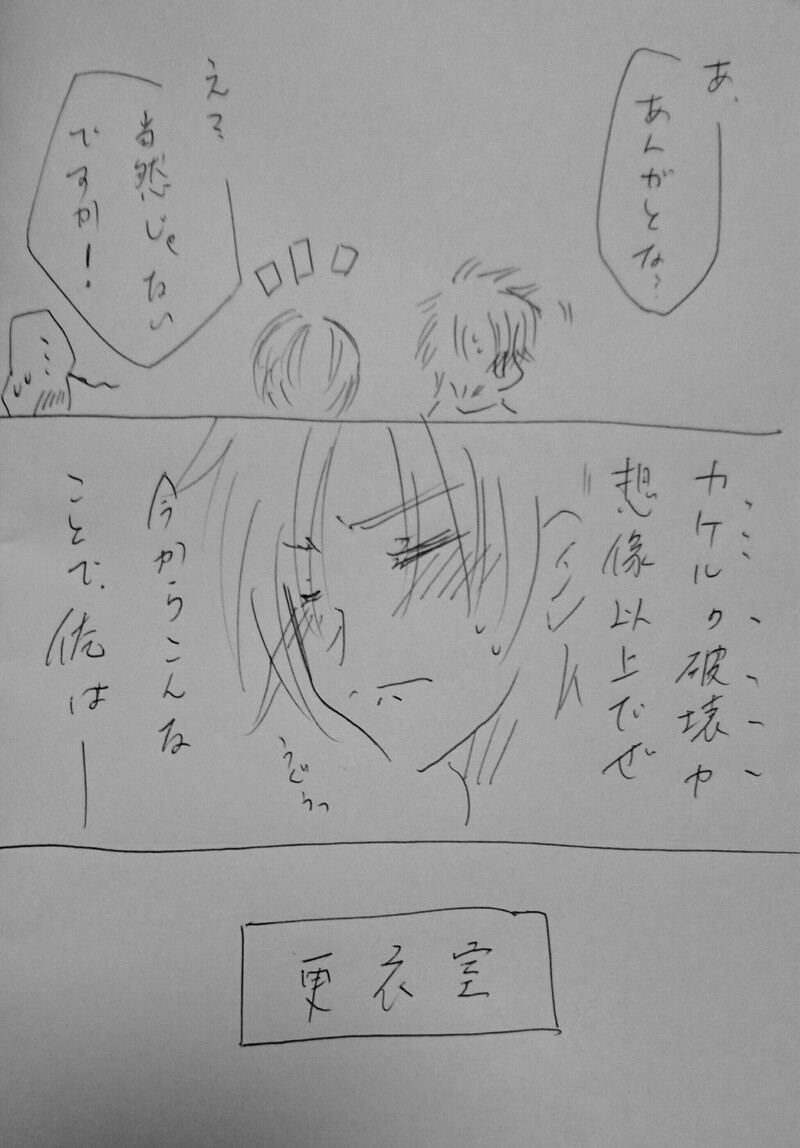 あ、
あんがとな?
えっ?
当然じゃない
ですか!
カケルの破壊力
想像以上だぜ
今からこんな
ことで、俺は―
うぐぅっ
更衣室